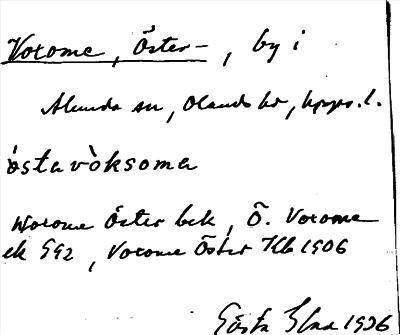 Voxome, Öster-, by i
Alunda sn, Olands hd, Upps. l.
östavòksoma
Woxome Öster bek, Ö. Voxome
ek 592, Voxome Öster Kb 1906
Gösta 1936